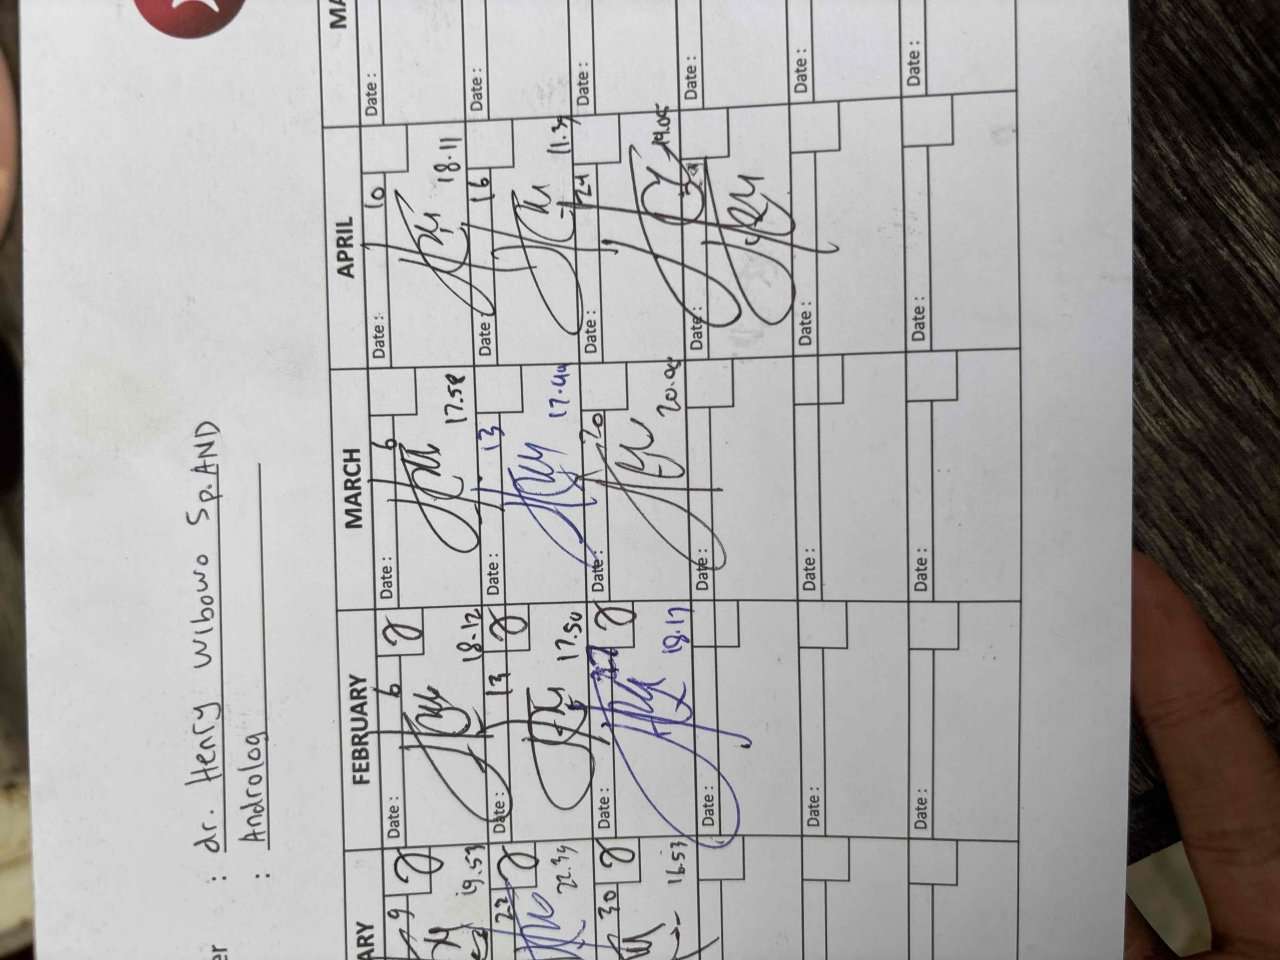 er : dr. Henry Wibowo Sp.AND
: Androlog
ARY FEBRUARY MARCH APRIL MA
9 Date : 6 Date : 6 Date : 10 Date :
19.53 18.12 17.58 18.11
22 Date : 13 Date : 13 Date : 16 Date :
22.39 17.50 11.3
30 Date : Date : 20 Date : 24 Date :
16.53 18.17 19.05
Date : Date : Date : Date :
Date : Date : Date : Date :
Date : Date : Date : Date :